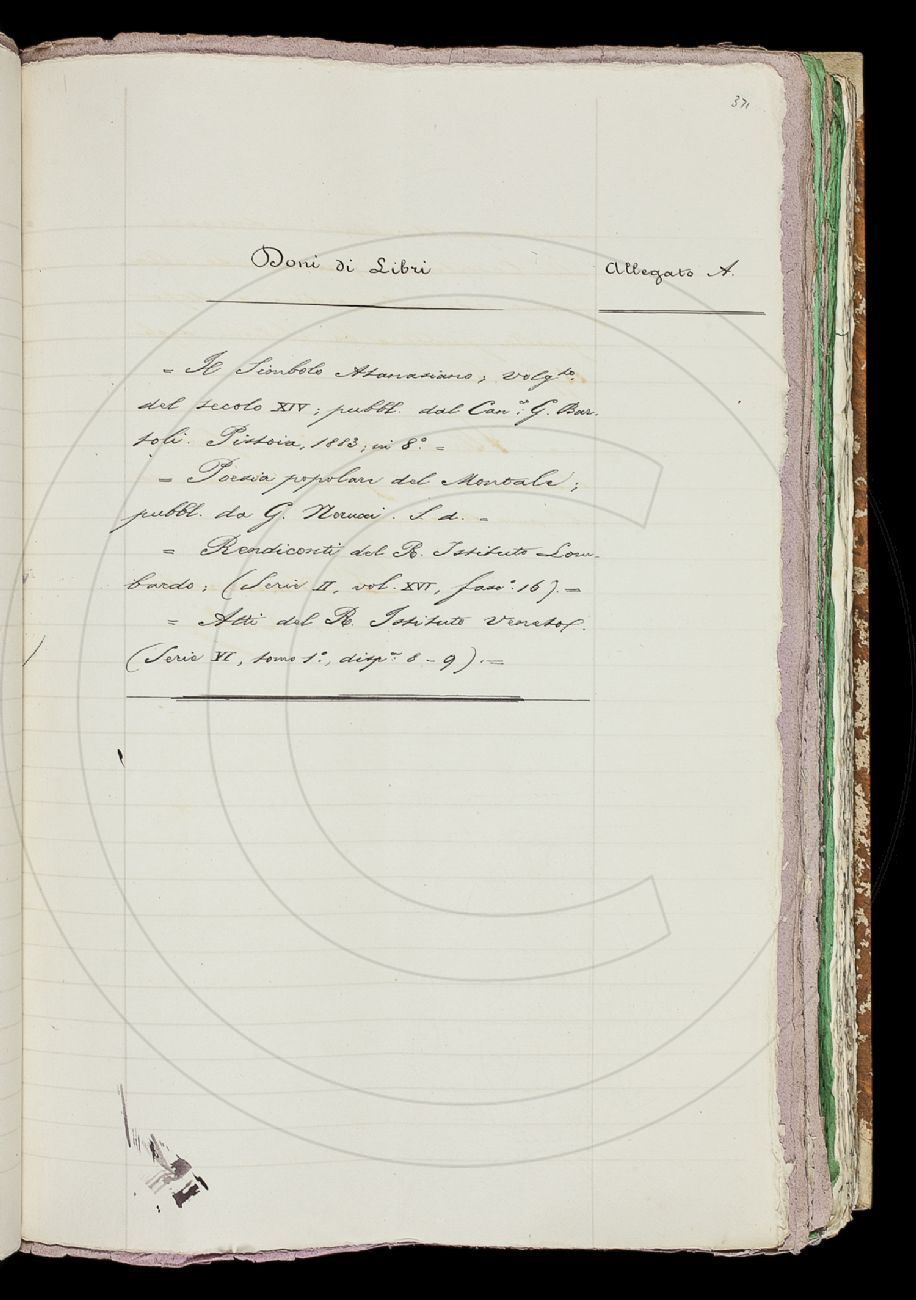 371
Doni di Libri
Allegato A.
= Il Simbolo Atanasiano; volgto.
del secolo XIV; pubbl. dal Can.º G. Bar-
toli. Pistoia, 1883; in 8.º =
= Poesia popolari del Montale;
pubbl. da G. Nerucci. S. d. =
= Rendiconti del R. Istituto Lom-
bardo; (Serie II, vol. XVI, fasc.º 16). =
= Atti del R. Istituto Veneto;
(Serie VI, tomo 1.º, disp.e 8 - 9). =